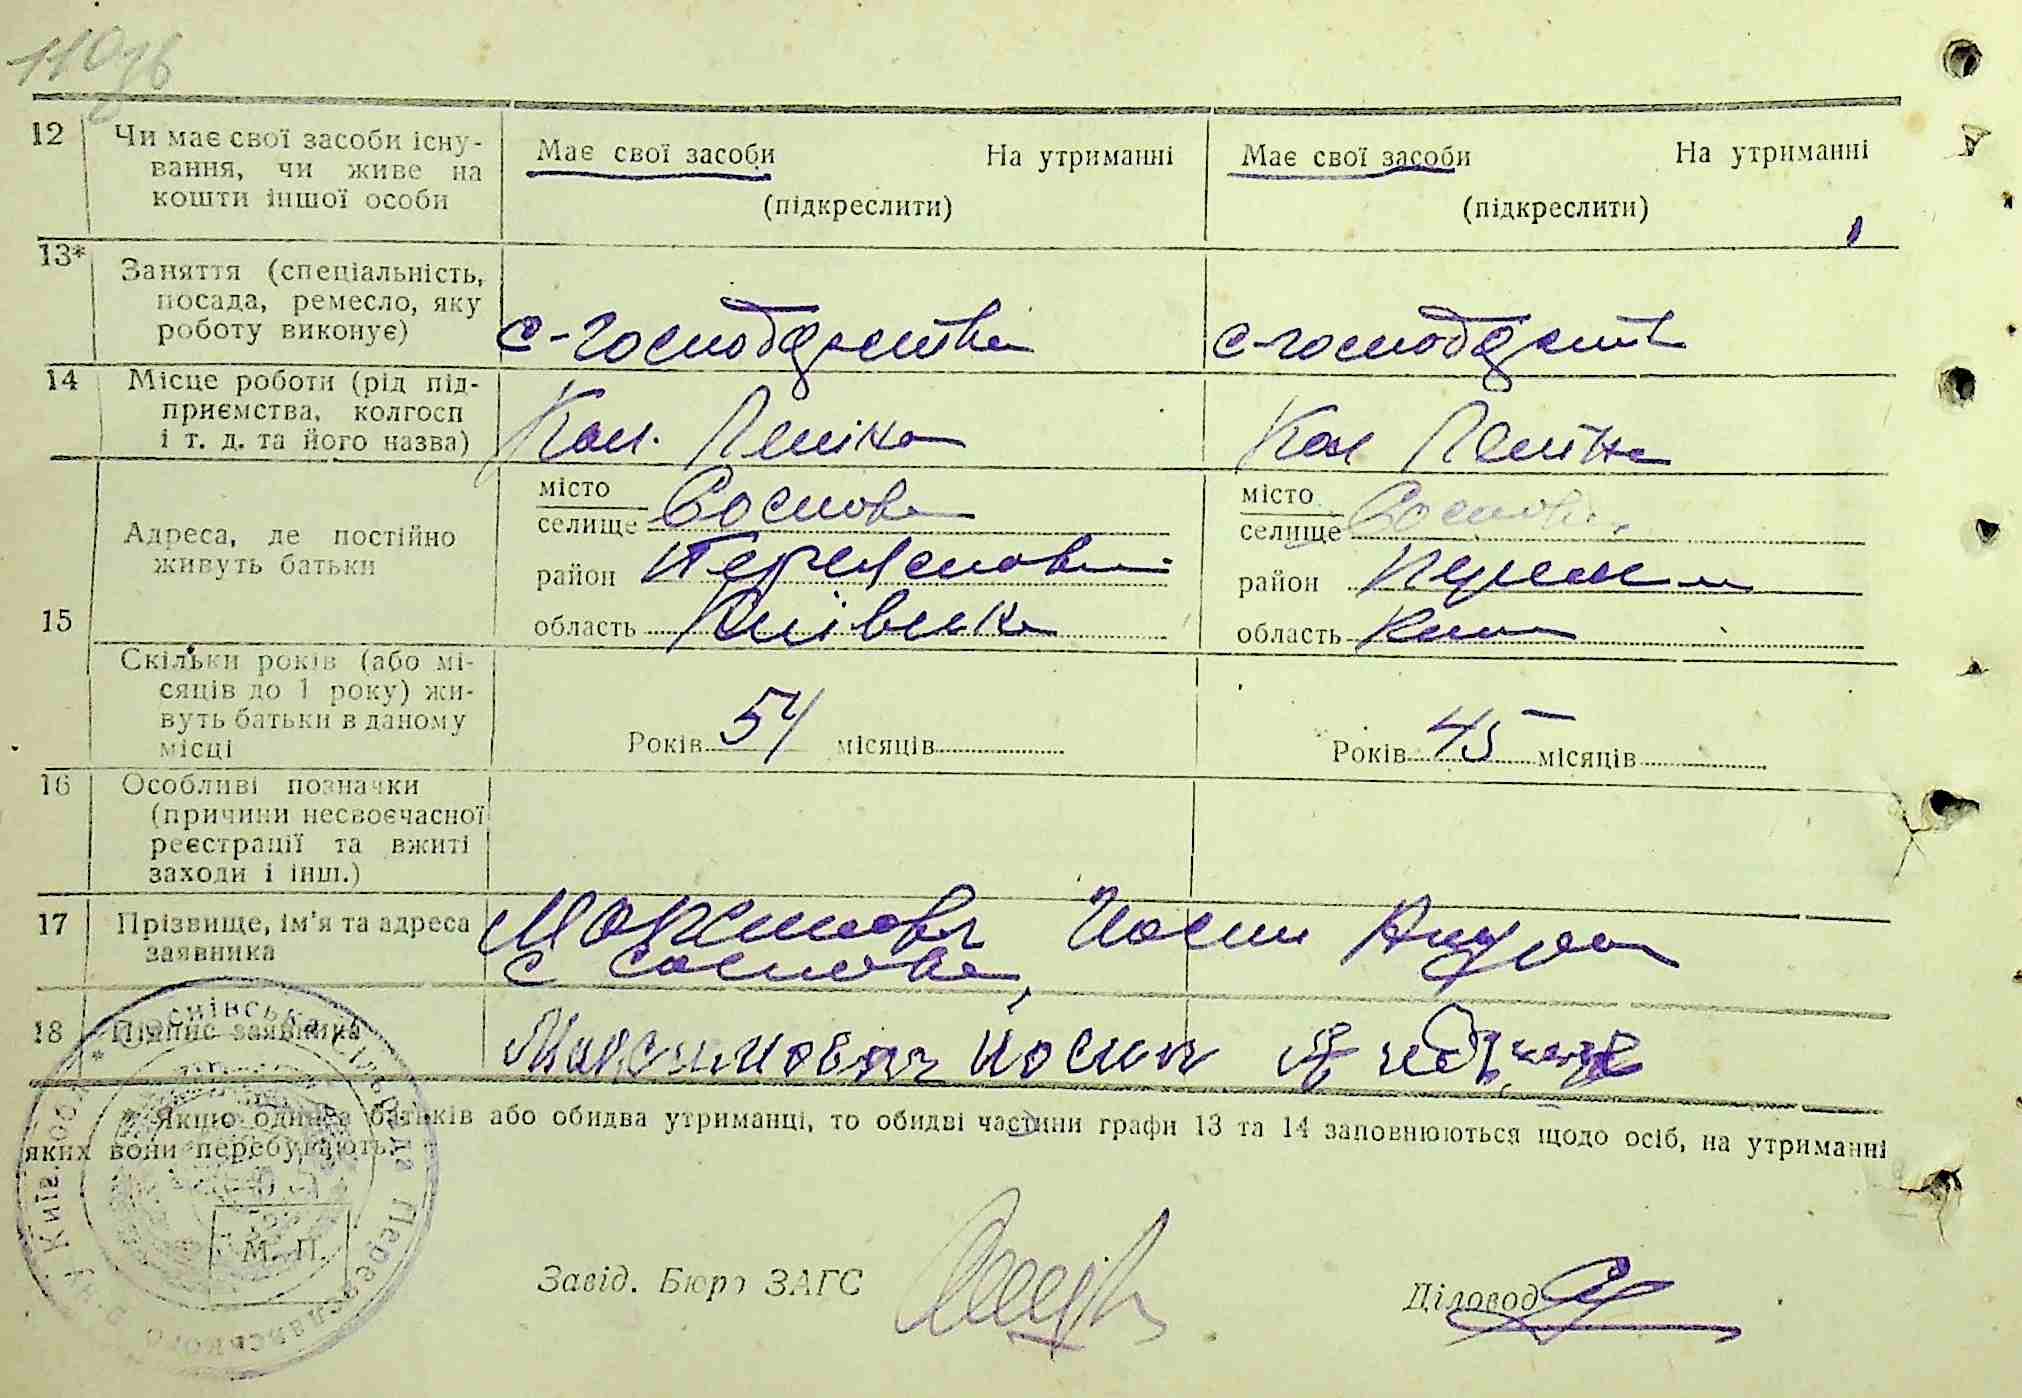 110зв
12 Чи має свої засоби існу-
вання, чи живе на
кошти іншої особи
Має свої засоби На утриманні
(підкреслити)
Має свої засоби На утриманні
(підкреслити)
13* Заняття (спеціальність,
посада, ремесло, яку
роботу виконує)
с-господарства
с-господарств
14 Місце роботи (рід під-
приємства, колгосп
і т. д. та його назва)
Кол. Леніна
Кол Леніна
15
Адреса, де постійно
живуть батьки
місто
селище Соснова
район Переяславськ
область Київська
місто
селище Соснова
район
область
Скільки років (або мі-
сяців до 1 року) жи-
вуть батьки в даному
місці
Років 54 місяців
Років 45 місяців
16 Особливі позначки
(причини несвоєчасної
реєстрації та вжиті
заходи і інш.)
17 Прізвище, ім'я та адреса
заявника
Максимович Йосип
с Соснова,
18 Підпис заявника
Максимович Йосип
* Якщо один з батьків або обидва утриманці, то обидві частини графи 13 та 14 заповнюються щодо осіб, на утриманні
яких вони перебувають.
М. П.
Завід. Бюро ЗАГС
Діловод